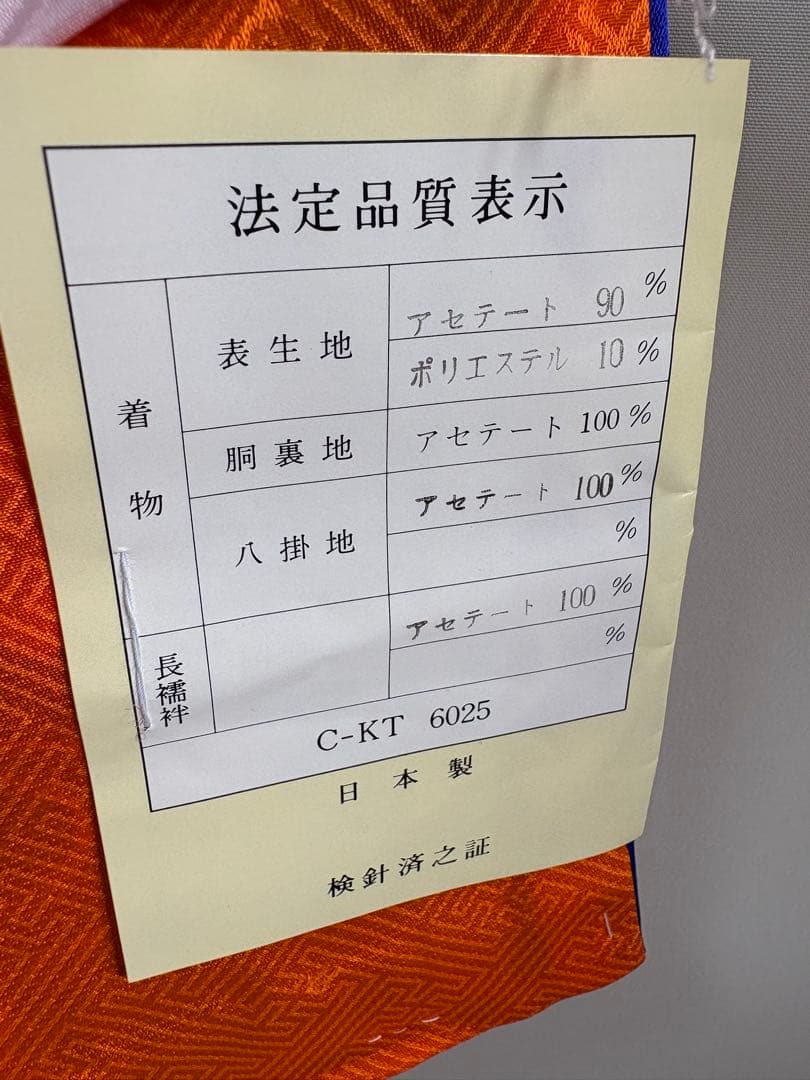 法定品質表示
着物
表生地
アセテート 90 %
ポリエステル 10 %
胴裏地
アセテート 100 %
八掛地
アセテート 100 %
%
長襦袢
アセテート 100 %
%
C-KT 6025
日本製
検針済之証